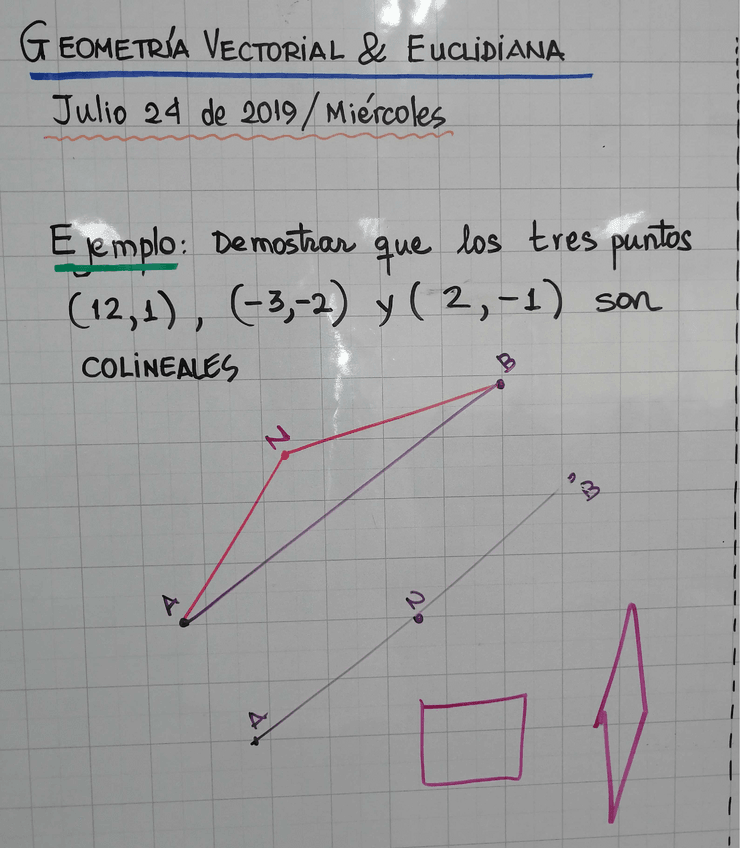 GEOMETRÍA VECTORIAL & EUCLIDIANA
Julio 24 de 2019/Miércoles
Ejemplo: Demostrar que los tres puntos
(12,1), (-3,-2) y (2,-1) son
COLINEALES
B
N
B
A
N
A